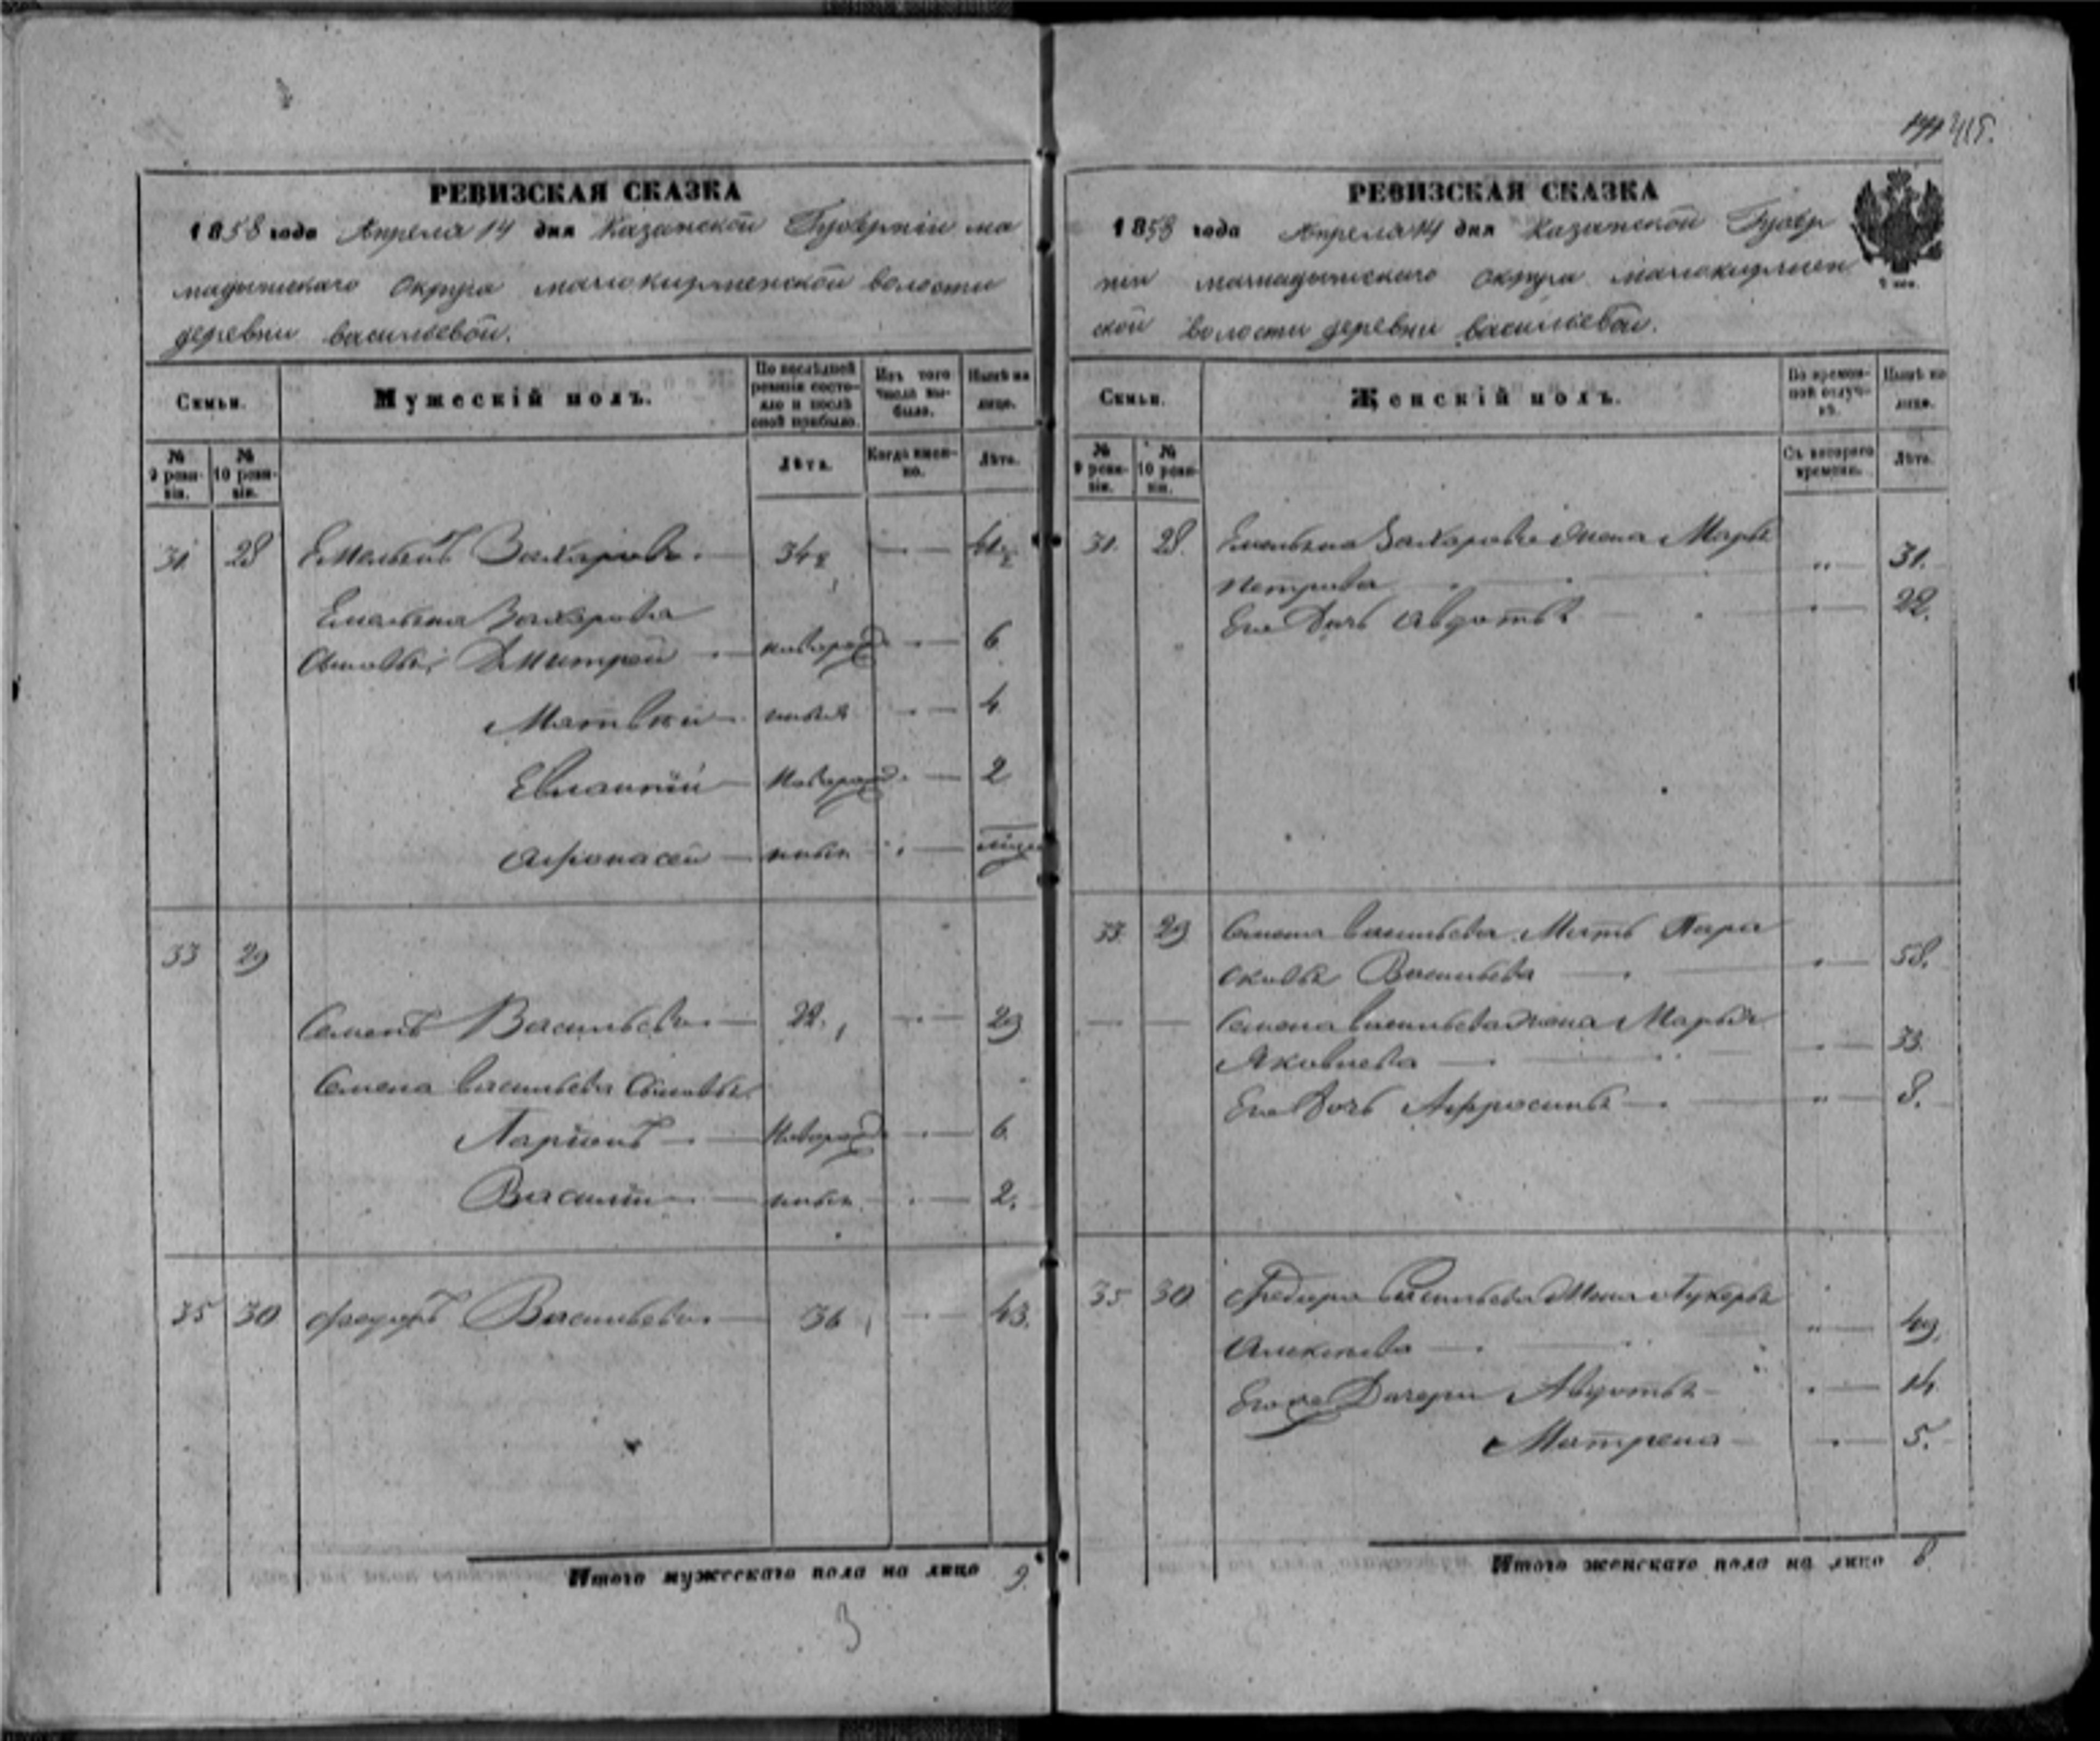 415.
РЕВИЗСКАЯ СКАЗКА
1858 года Апреля 14 дня Казанской Губерніи ма
мадышскаго Округа малокирменской волости
деревни васильевой.
Семьи.
Мужескій полъ.
По послѣдней ревизіи состояло и послѣ оной прибыло.
Изъ того числа выбыло.
Нынѣ на лицо.
№ 9 ревизіи.
№ 10 ревизіи.
Лѣта.
Когда именно.
Лѣта.
31. 28 Емельянъ Захаровъ. — 34½ — 41½
Емельяна Захарова
Сыновья Дмитрей — новорож — 6
Матвей — новая — 4
Евлампій — Новорож — 2
Афонасей —
33 29
Семенъ Васильевъ — 22. — 29
Семена васильева Сыновья
Ларионъ — Новорож — 6.
Василій — — 2.
35 30 федоръ Васильевъ — 36 — 43.
Итого мужескаго пола на лицо 9.
3
РЕВИЗСКАЯ СКАЗКА
1858 года Апреля 14 дня Казанской Губер
ніи мамадышскаго округа малокирмен
ской волости деревни васильевой.
Семьи.
Женскій полъ.
Во временной отлучкѣ.
Нынѣ на лицо.
№ 9 ревизіи.
№ 10 ревизіи.
Съ котораго времени.
Лѣта.
31. 28. Емельяна Захарова жена Марья
Петрова — " — 31.
Его Дочь Авдотья — 22.
33. 29 Семена васильева Мать Пара
сковья Васильева — 58.
— — Семена васильева жена Марья
Яковлева — 33.
Его Дочь Афросинья — " — 8.
35 30 Федора Васильева Жена Лукерья
Алексеева — " — 49.
Его же Дочери Авдотья — 14
Матрена — 5.
Итого женскаго пола на лицо 8.